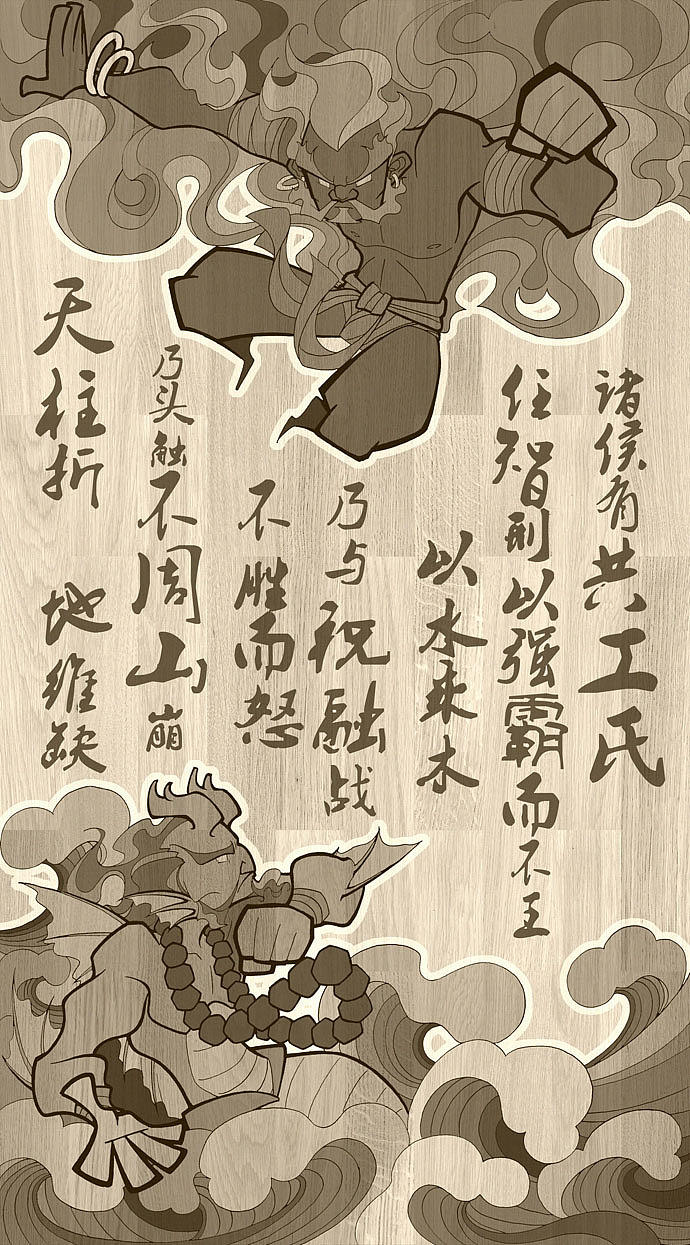 诸侯有共工氏
任智刑以强霸而不王
以水乘木
乃与祝融战
不胜而怒
乃头触不周山崩
天柱折
地维缺